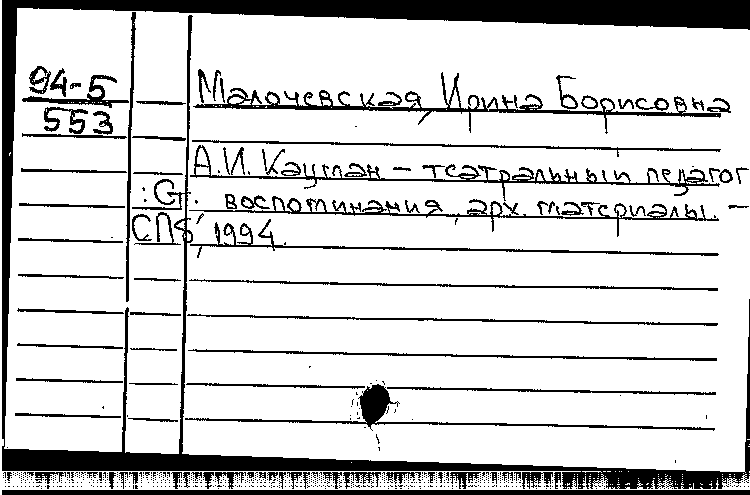 94-5
553
Малочевская, Ирина Борисовна
А.И. Кацман – театральный педагог
: Сб. воспоминания, арх. материалы. –
СПб, 1994.